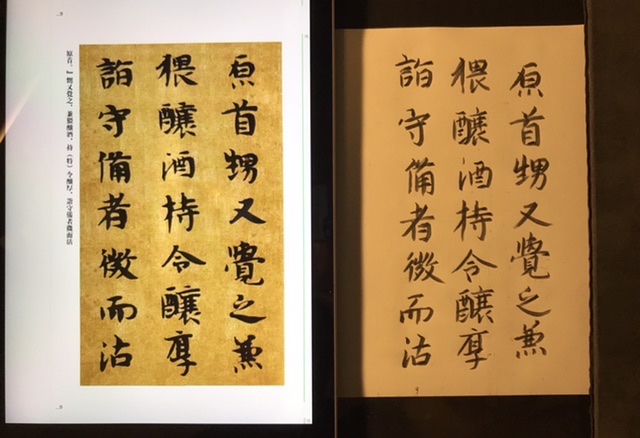 原首甥又覺之兼
猥釀酒持令釀厚
詣守備者微而沽
原首。』甥又覺之，兼猥釀酒，持（特）令釀厚，詣守備者微而沽
原首甥又覺之兼
猥釀酒持令釀厚
詣守備者微而沽